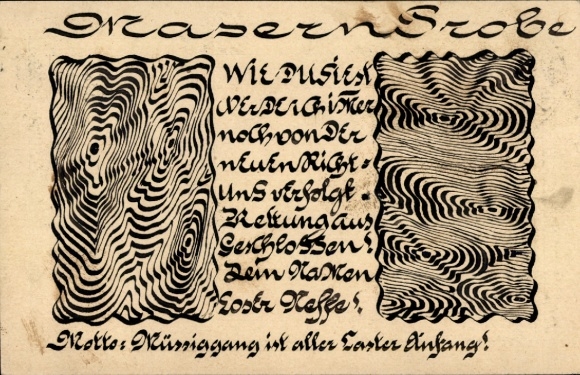 Masern Probe
Wie du siest
werde ich immer
noch von der
neuen Richt=
uns verfolgt.
Rettung aus
Geschlossen!
Dein
Neffe!
Motto: Müssiggang ist aller Laster Anfang!